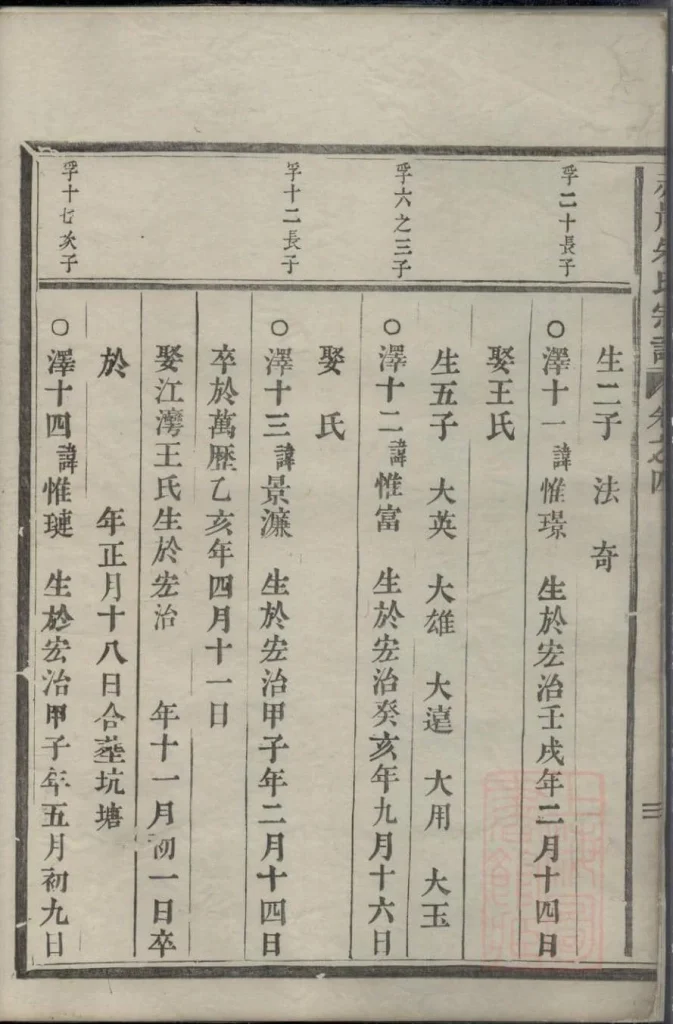 朱氏宗譜 卷之四
三
生二子 法 奇
孚二十長子
○澤十一諱惟璟 生於宏治壬戌年二月十四日
娶王氏
生五子 大英 大雄 大遑 大用 大玉
孚六之三子
○澤十二諱惟富 生於宏治癸亥年九月十六日
娶 氏
孚十二長子
○澤十三諱景濂 生於宏治甲子年二月十四日
卒於萬歷乙亥年四月十一日
娶江灣王氏生於宏治 年十一月初一日卒
於 年正月十八日合塟坑塘
孚十七次子
○澤十四諱惟璉 生於宏治甲子年五月初九日